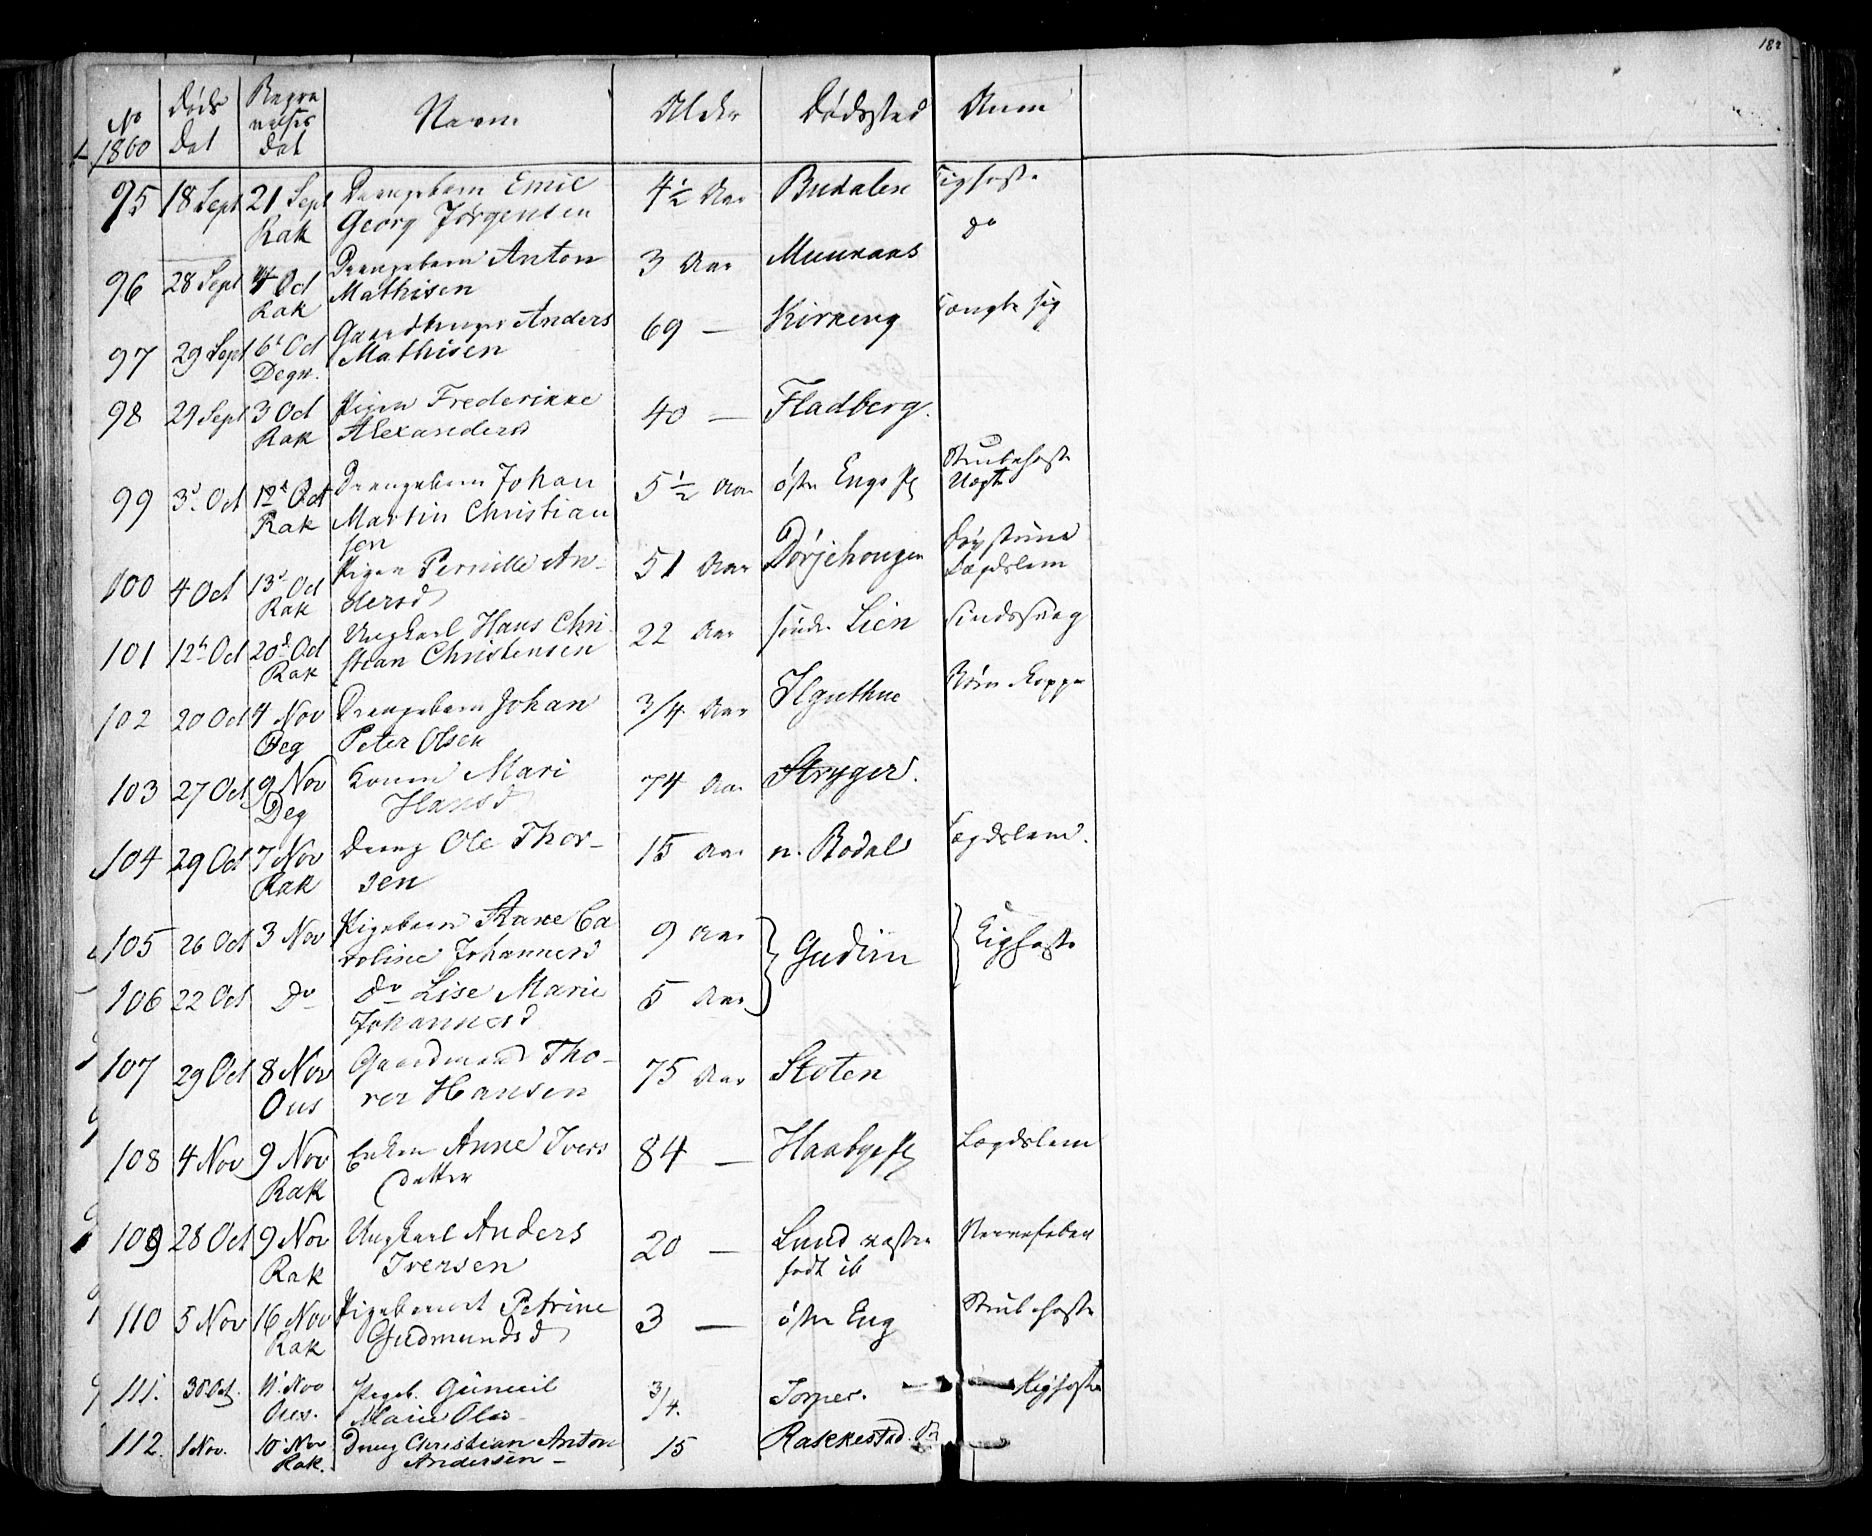 182
No 1860 | Døds Dat | Begravelses Dat | Navn | Alder | Dødssted | Anm
95 | 18 Sept | 21 Sept Rak | Drengebarn Emil
Georg Jørgensen | 4½ Aar | Budalen | Kighoste
96 | 28 Sept | 4 Oct Rak | Drengebarn Anton
Mathisen | 3 Aar | Muuraas | do
97 | 29 Sept | 6t Oct Degn. | Gaardbruger Anders
Mathisen | 69 — | Kirkeng | hængte sig
98 | 29 Sept | 3 Oct Rak | Pigen Frederikke
Alexandersd | 40 — | Fladberg.
99 | 3d Oct | 12t Oct Rak | Drengebarn Johan
Martin Christian
sen | 5½ Aar | østre Engs | Strubehoste
100 | 4 Oct | 13d Oct Rak | Pigen Pernille An-
dersd | 51 Aar | Dørjehougen | Døvstum
Lægdslem
101 | 12t Oct | 20d Oct Rak | Ungkarl Hans Chri
stian Christensen | 22 Aar | søndr Lien | sindssvag
102 | 20 Oct | 4 Nov Deg | Drengebarn Johan
Peter Olsen | 3/4 Aar | | Børnekopper
103 | 27 Oct | 9 Nov Deg | Konen Mari
Hansd | 74 Aar | Stryger.
104 | 29 Oct | 7 Nov Rak | Dreng Ole Thor-
sen | 15 Aar | n. Bodal | Lægdslem.
105 | 26 Oct | 3 Nov | Pigebarn Anne Ca
roline Johannesd | 9 Aar | Gudim | Kighoste
106 | 22 Oct | Do | do Lise Marie
Johannesd | 5 Aar
107 | 29 Oct | 8 Nov Ous | Gaardmand Tho-
rer Hansen | 75 Aar | Stoten
108 | 4 Nov | 9 Nov Rak | Enken Anne Ivers
datter | 84 — | | Lægdslem
109 | 28 Oct | 9 Nov Rak | Ungkarl Anders
Iversen | 20 — | Lund vestre
født ib | Nervefeber
110 | 5 Nov | 16 Nov Rak | Pigebarnet Petrine
Gudmundsd | 3 — | østre Eng | Strubehoste
111. | 30 Oct. | 11 Nov Ous. | Pigeb. Gunnil
Marie Olsd | 3/4. | Torper. | Kighoste
112. | 1 Nov. | 10 Nov Rak. | Dreng Christian Anton
Andersen — | 15 | Rakkestad.